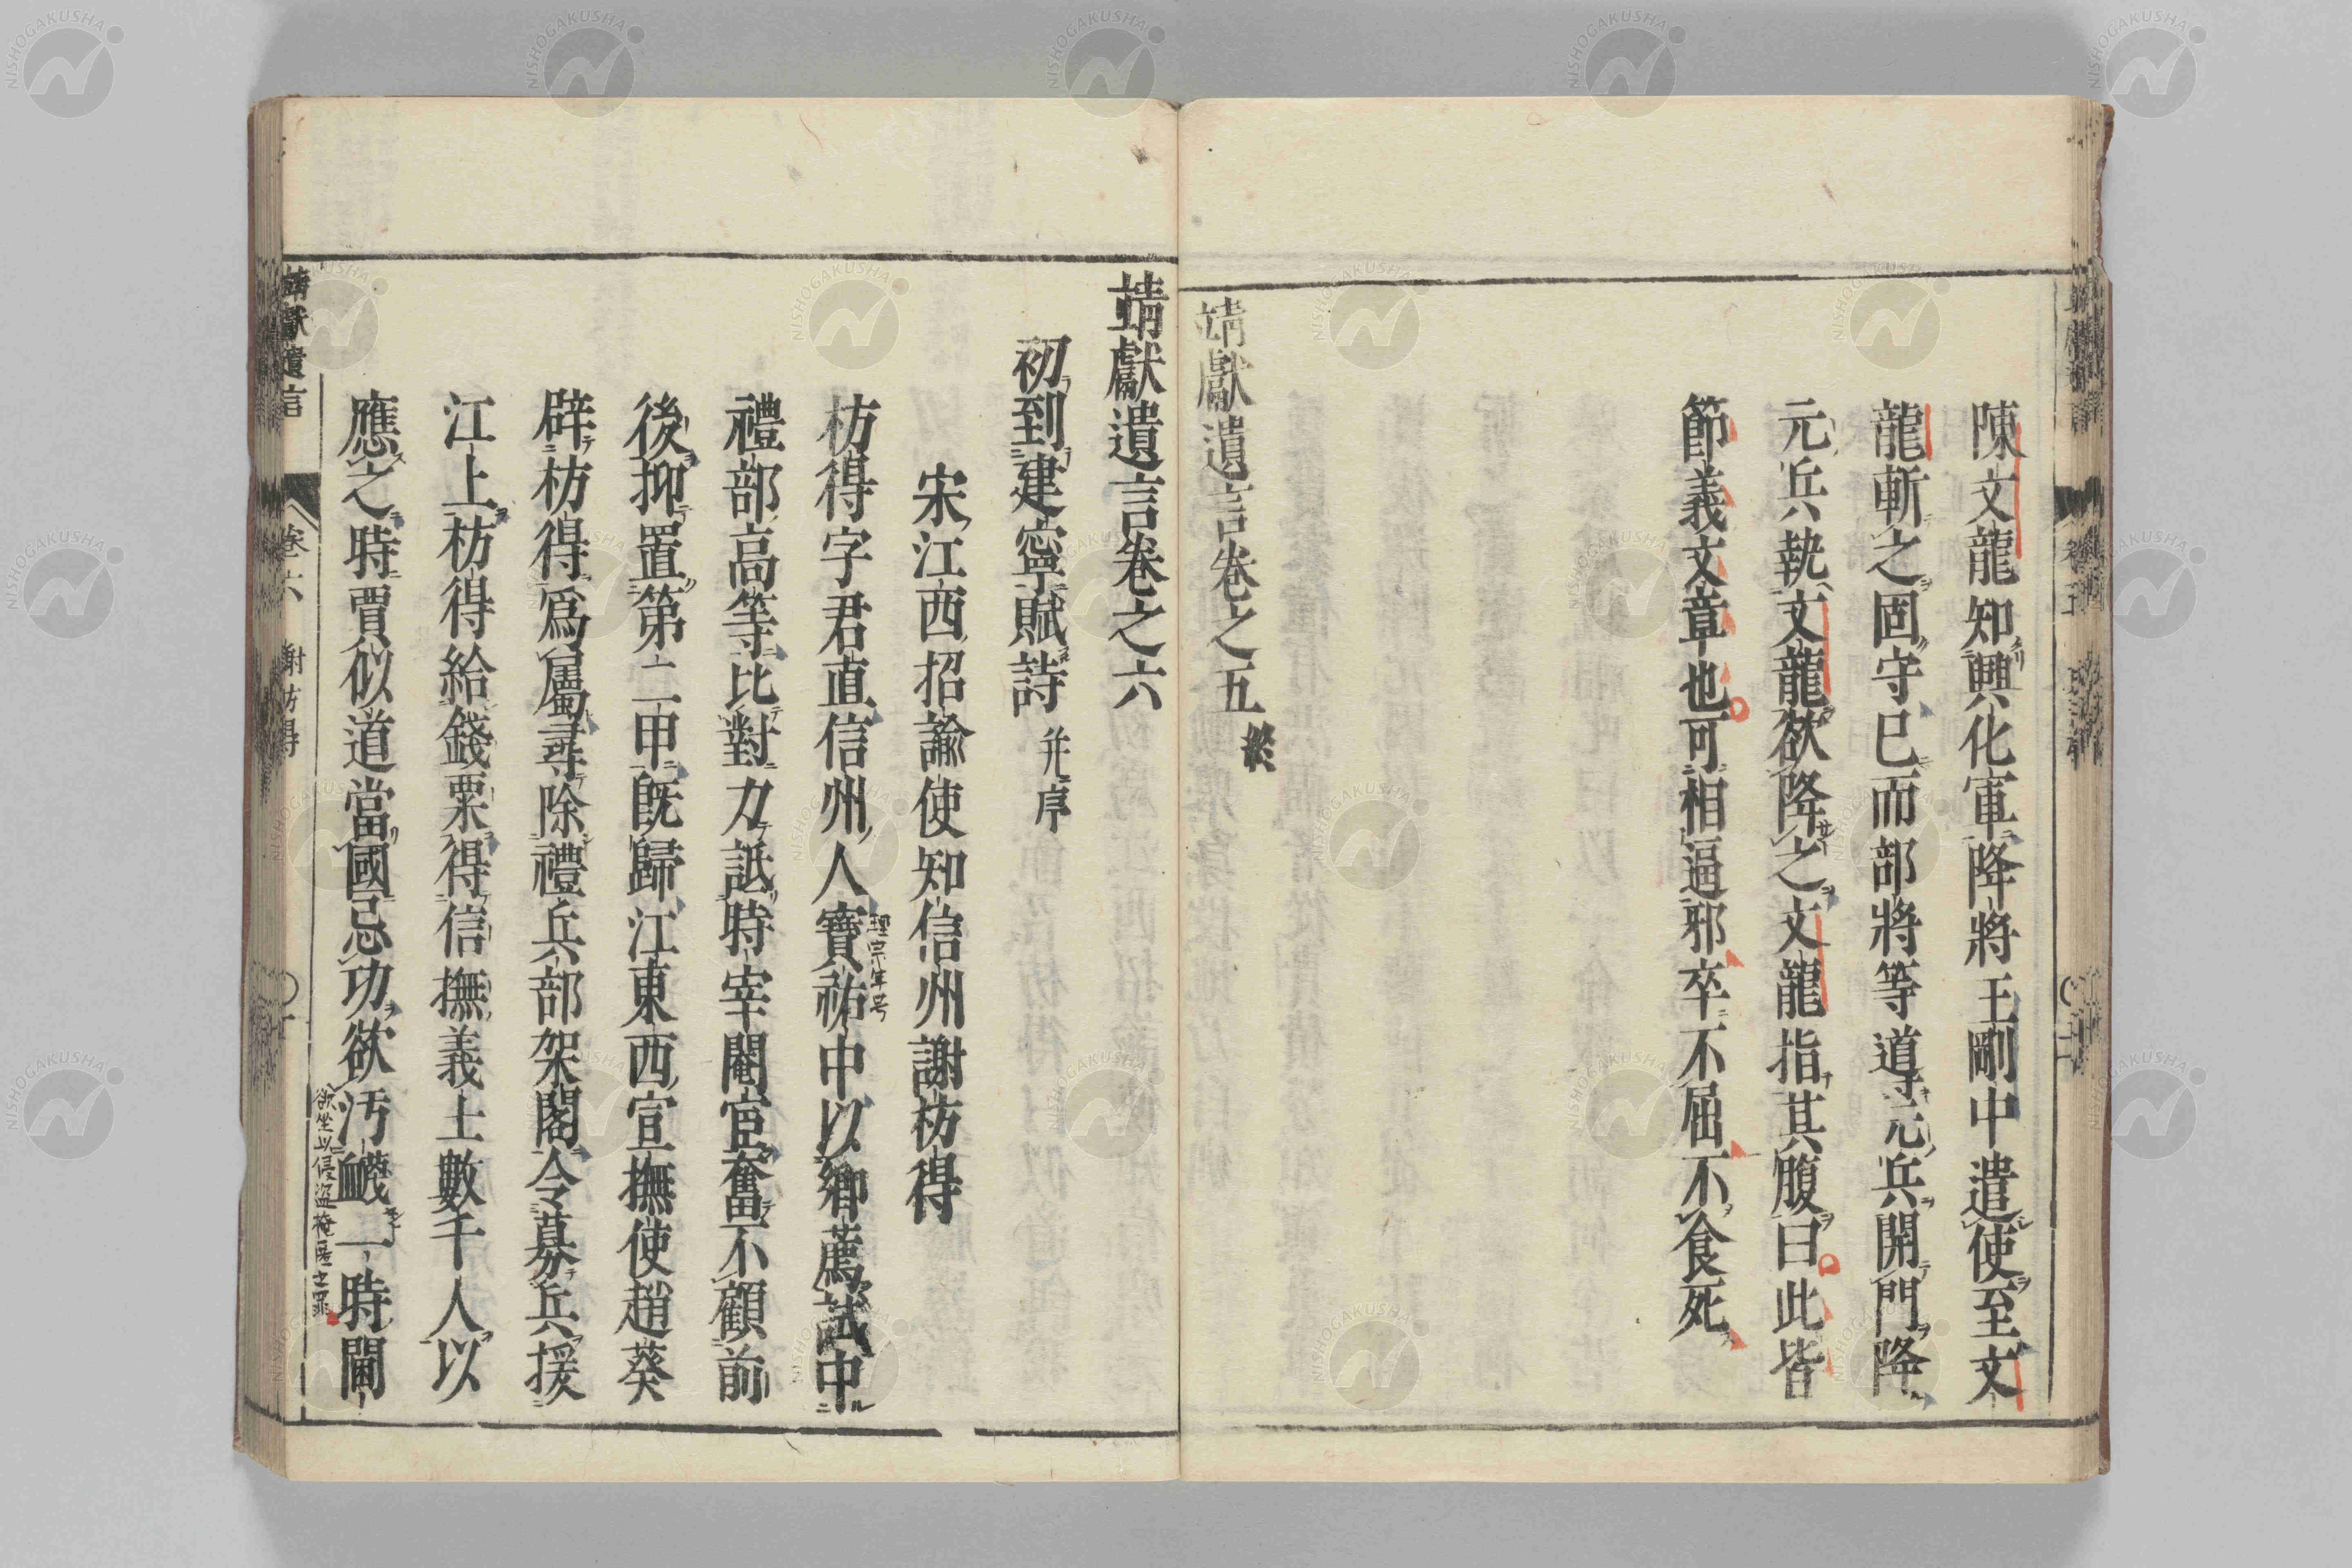 陳文龍知興化軍降將王剛中遣使至文
龍斬之固守已而部將等道元兵開門降
元兵執文龍欲降之文龍指其腹曰此皆
節義文章也可相逼邪卒不屈不食死
靖獻遺言卷之五 終
靖獻遺言卷之六
初到建寧賦詩 并序
宋江西招諭使知信州謝枋得
枋得字君直信州人寶祐中以鄉薦試中
理宗年号
禮部高等比對力詆時宰閹宦奮不顧前
後抑置第二甲既歸江東西宣撫使趙葵
辟枋得爲屬尋除禮兵部架閣令募兵援
江上枋得給錢粟得信撫義士數千人以
應之時賈似道當國忌功欲汚衊一時閫
欲坐以侵盜掩匿之罪
靖獻遺言 卷六 謝枋得 〇一
NISHOGAKUSHA